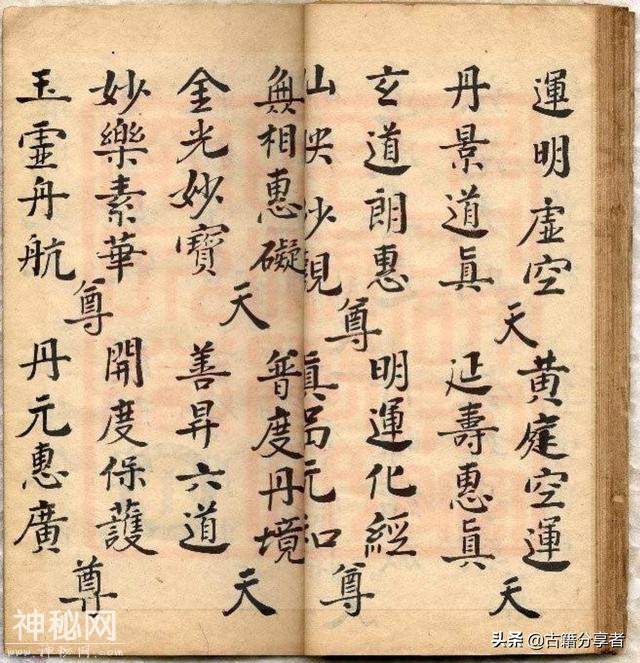 運明虛空
丹景道眞
天
玄道朗惠
仙映妙觀
尊
無相惠礙
金光妙寶
天
妙樂素華
玉靈舟航
尊
黃庭空運
延壽惠眞
天
明運化經
眞品元和
尊
普度丹境
善昇六道
天
開度保護
丹元惠廣
尊
神秘网
头条 @古籍分享者